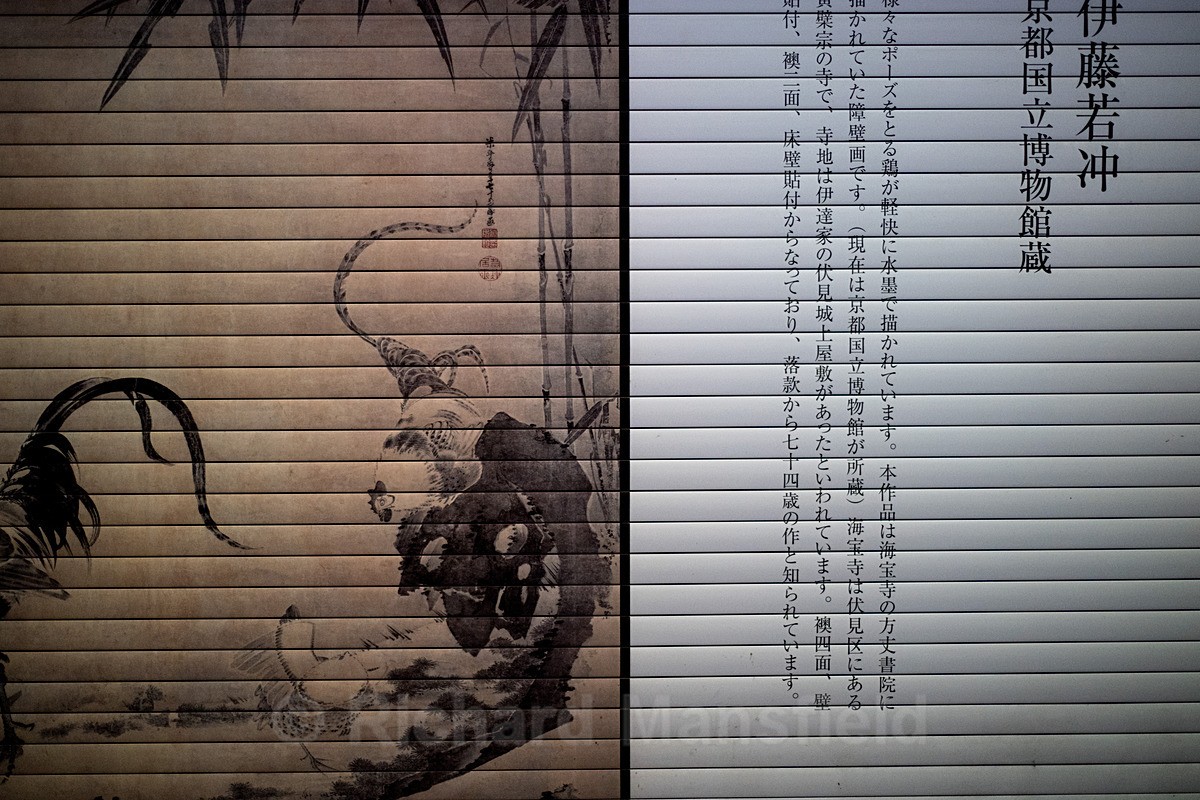 伊藤若冲
京都国立博物館蔵
様々なポーズをとる鶏が軽快に水墨で描かれています。本作品は海宝寺の方丈書院に
描かれていた障壁画です。(現在は京都国立博物館が所蔵)海宝寺は伏見区にある
黄檗宗の寺で、寺地は伊達家の伏見城上屋敷があったといわれています。襖四面、壁
貼付、襖二面、床壁貼付からなっており、落款から七十四歳の作と知られています。
© Richard Mansfield